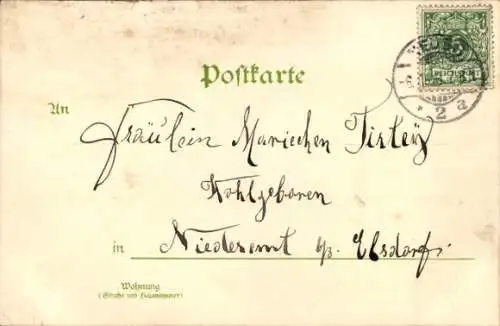 Postkarte
An
Fräulein Mariechen
Wohlgeboren
in Niederemt p/. Elsdorf.
Wohnung
(Straße und Hausnummer)
2 a